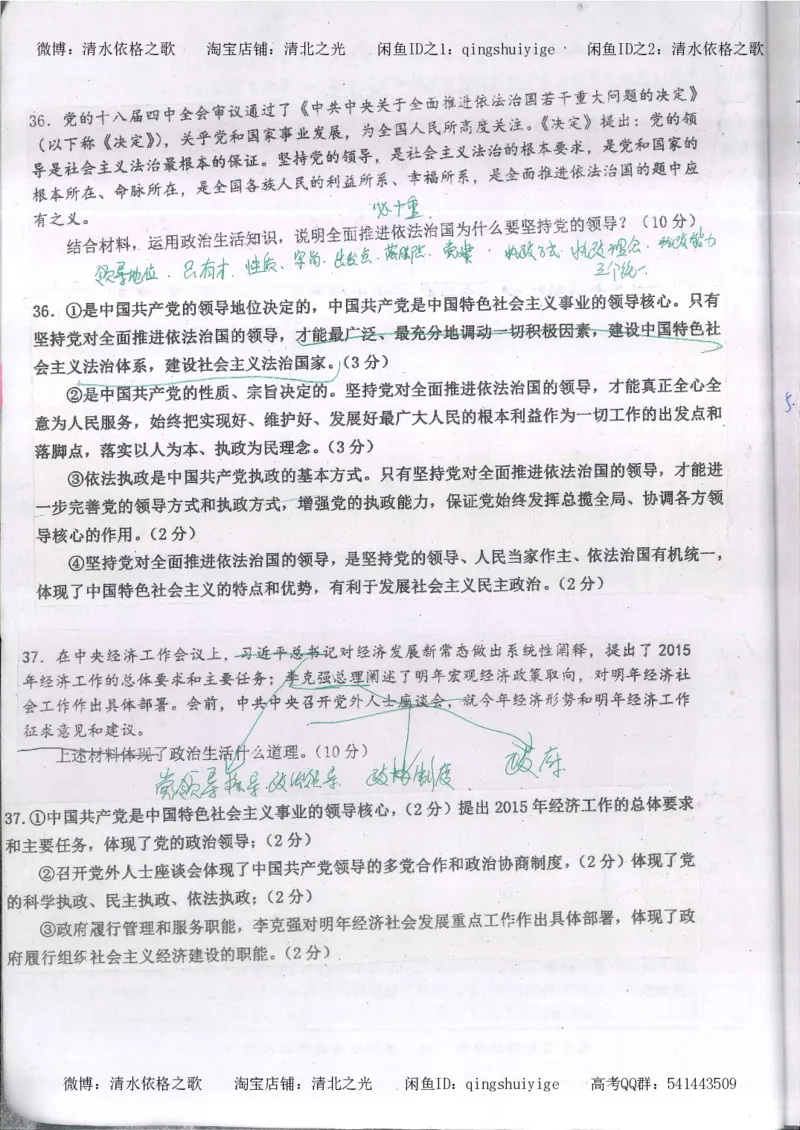 微博：清水依格之歌 淘宝店铺：清北之光 闲鱼ID之1：qingshuiyige 闲鱼ID之2：清水依格之歌
36．党的十八届四中全会审议通过了《中共中央关于全面推进依法治国若干重大问题的决定》
（以下称《决定》），关乎党和国家事业发展，为全国人民所高度关注。《决定》提出：党的领
导是社会主义法治最根本的保证。坚持党的领导，是社会主义法治的根本要求，是党和国家的
根本所在、命脉所在，是全国各族人民的利益所系、幸福所系，是全面推进依法治国的题中应
有之义。
必十重
结合材料，运用政治生活知识，说明全面推进依法治国为什么要坚持党的领导？（10分）
领导地位．只有才．性质、宗旨．出发点．落脚点．党建．执政方式．执政理念．执政能力
三个统一
36．①是中国共产党的领导地位决定的，中国共产党是中国特色社会主义事业的领导核心。只有
坚持党对全面推进依法治国的领导，才能最广泛、最充分地调动一切积极因素，建设中国特色社
会主义法治体系，建设社会主义法治国家。（3分）
②是中国共产党的性质、宗旨决定的。坚持党对全面推进依法治国的领导，才能真正全心全
意为人民服务，始终把实现好、维护好、发展好最广大人民的根本利益作为一切工作的出发点和
落脚点，落实以人为本、执政为民理念。（3分）
③依法执政是中国共产党执政的基本方式。只有坚持党对全面推进依法治国的领导，才能进
一步完善党的领导方式和执政方式，增强党的执政能力，保证党始终发挥总揽全局、协调各方领
导核心的作用。（2分）
④坚持党对全面推进依法治国的领导，是坚持党的领导、人民当家作主、依法治国有机统一，
体现了中国特色社会主义的特点和优势，有利于发展社会主义民主政治。（2分）
37．在中央经济工作会议上，习近平总书记对经济发展新常态做出系统性阐释，提出了2015
年经济工作的总体要求和主要任务；李克强总理阐述了明年宏观经济政策取向，对明年经济社
会工作作出具体部署。会前，中共中央召开党外人士座谈会，就今年经济形势和明年经济工作
征求意见和建议。
上述材料体现了政治生活什么道理。（10分）
党领导 政治领导 政协制度 政府
37.①中国共产党是中国特色社会主义事业的领导核心，（2分）提出2015年经济工作的总体要求
和主要任务，体现了党的政治领导；（2分）
②召开党外人士座谈会体现了中国共产党领导的多党合作和政治协商制度，（2分）体现了党
的科学执政、民主执政、依法执政；（2分）
③政府履行管理和服务职能，李克强对明年经济社会发展重点工作作出具体部署，体现了政
府履行组织社会主义经济建设的职能。（2分）
5.
微博：清水依格之歌 淘宝店铺：清北之光 闲鱼ID：qingshuiyige 高考QQ群：541443509